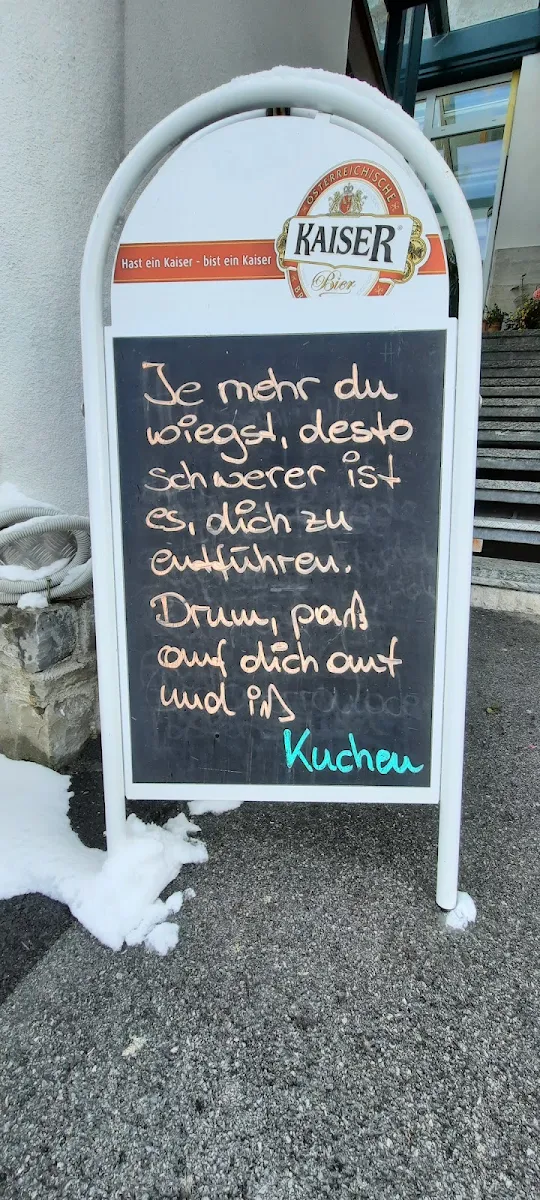 ÖSTERREICHISCHE
KAISER®
Bier
Hast ein Kaiser - bist ein Kaiser
Je mehr du
wiegst, desto
schwerer ist
es, dich zu
entführen.
Drum, paß
auf dich auf
und iß
Kuchen